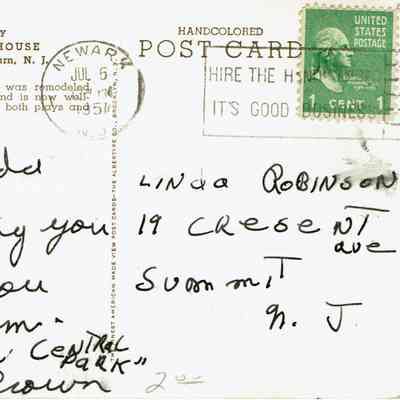 HANDCOLORED
POST CARD
HOUSE
urn, N. J.
was remodeled
nd is now well
both plays and
NEWARK
JUL 6
1951
N.J.
HIRE THE
IT'S GOOD BUSINESS
UNITED
STATES
POSTAGE
1 CENT 1
THE ALBERTYPE CO., BROOKLYN, N.Y.
AMERICAN MADE VIEW POST CARDS
you
ou
m.
CENTRAL
PARK"
rown
LINDA ROBINSON
19 CRESENT
ave
SUMMIT
N. J.
2